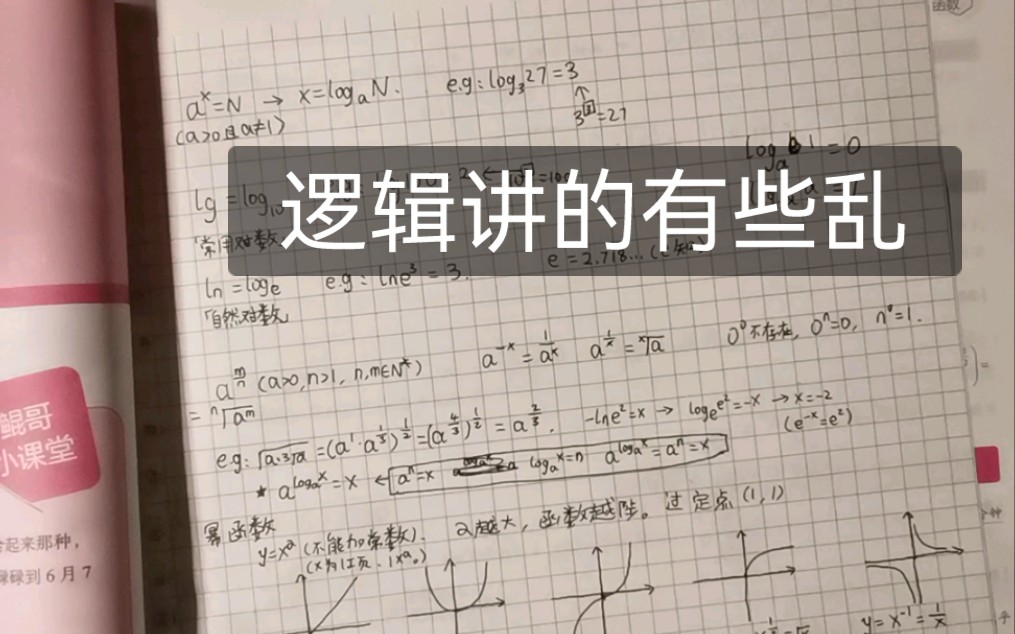 函数
aˣ=N → x=logₐN. e.g:log₃27=3
(a>0且a≠1)
3³=27
logₐ1=0
lg=log₁₀
逻辑讲的有些乱
常用对数
ln=logₑ e.g:lne³=3. e=2.718…
自然对数
a^(m/n) (a>0,n>1, n,m∈N*) a⁻ˣ=1/aˣ a^(1/x)=ˣ√a 0⁰不存在, 0ⁿ=0, n⁰=1.
=ⁿ√aᵐ
e.g:√(a·³√a)=(a¹·a^(1/3))^(1/2)=(a^(4/3))^(1/2)=a^(2/3). -lne²=x → logₑe²=-x → x=-2
(e⁻ˣ=e²)
★ a^(logₐx)=x ← aⁿ=x logₐx=n a^(logₐx)=aⁿ=x
幂函数
y=xᵃ (不能加常数). a越大，函数越陡。过定点(1,1)
(x为1次项、1xᵃ。)
y=x⁻¹=1/x
鲲哥
小课堂
起来那种，
碌到6月7